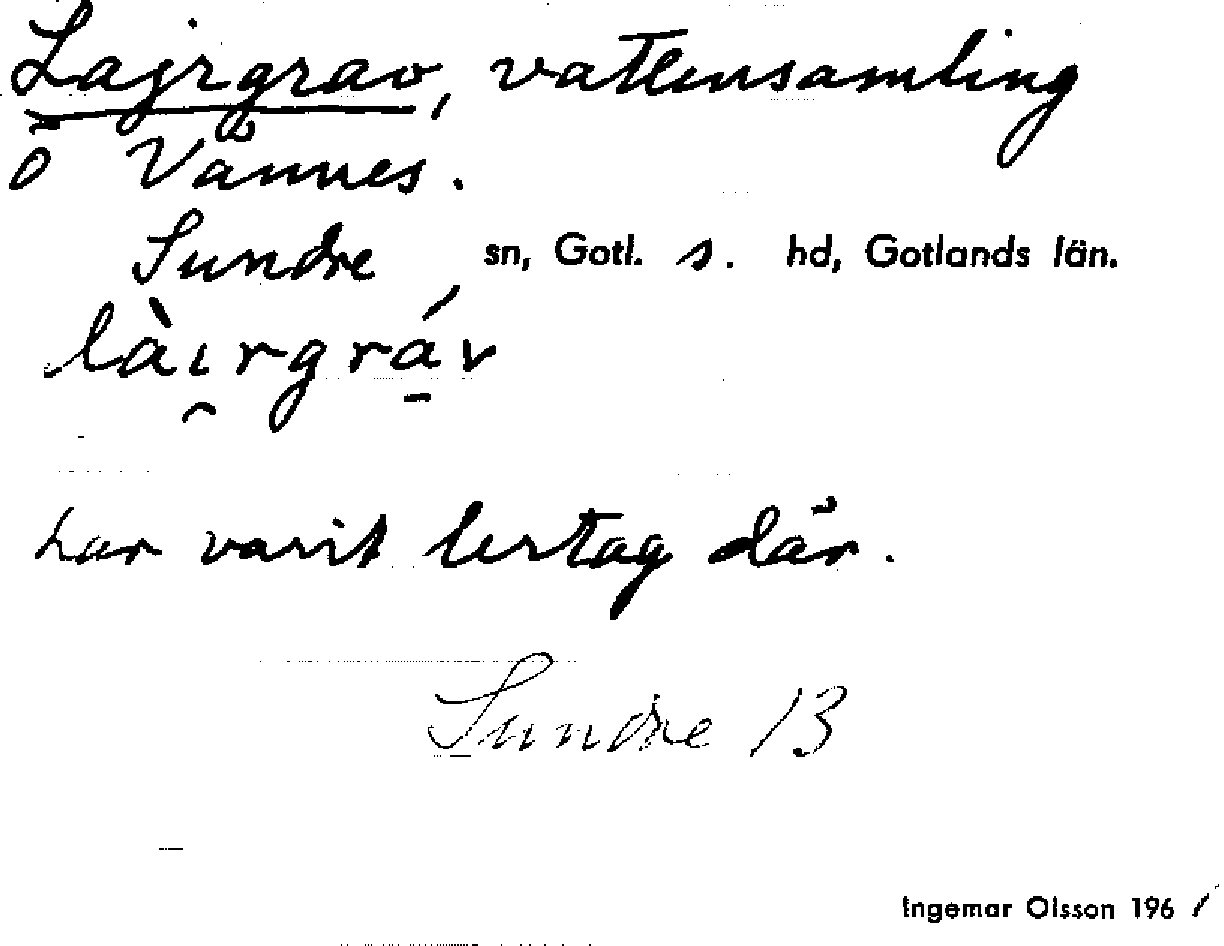 Lajrgrav, vattensamling
ö Vännes.
Sundre sn, Gotl. s. hd, Gotlands län.
là̀ırgráv
har varit lertag där.
Sundre 13
Ingemar Olsson 1961